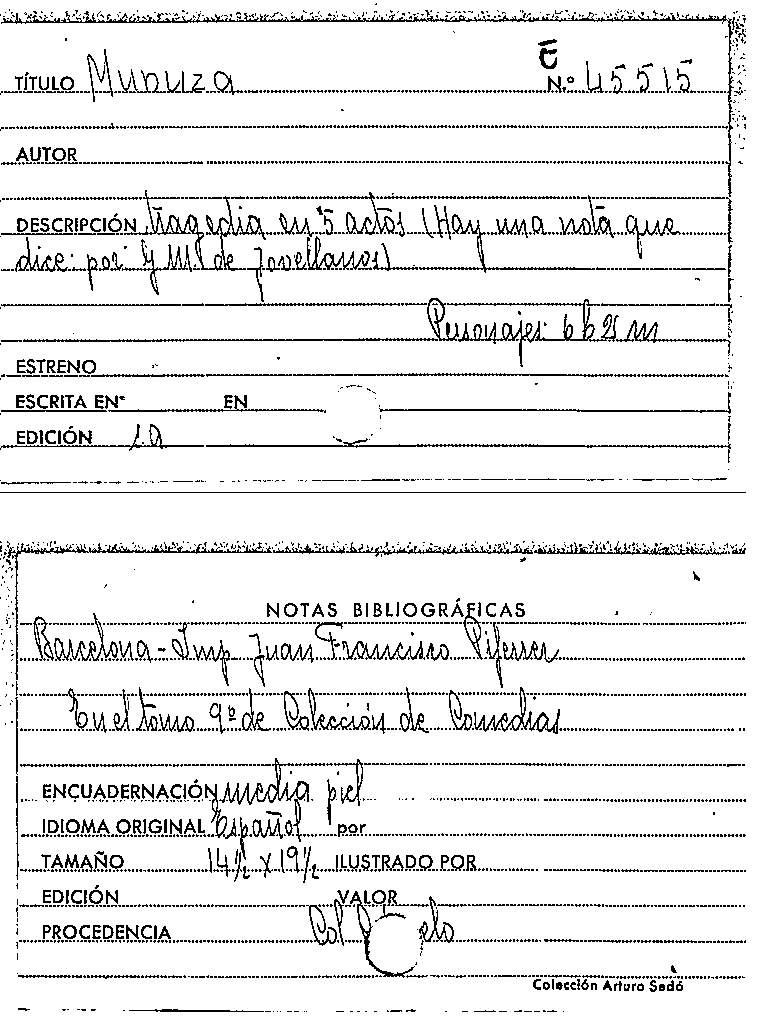 TÍTULO Munuza
C̄
N.º 45515
AUTOR
DESCRIPCIÓN tragedia en 5 actos (Hay una nota que
dice: por G M. de Jovellanos)
Personajes: 6 h 2 m
ESTRENO
ESCRITA EN EN
EDICIÓN 1a
NOTAS BIBLIOGRÁFICAS
Barcelona - Imp. Juan Francisco Piferrer
En el tomo 9º de Colección de Comedias
ENCUADERNACIÓN media piel
IDIOMA ORIGINAL Español por
TAMAÑO 14½ x 19½ ILUSTRADO POR
EDICIÓN VALOR
PROCEDENCIA Col
Colección Arturo Sedó